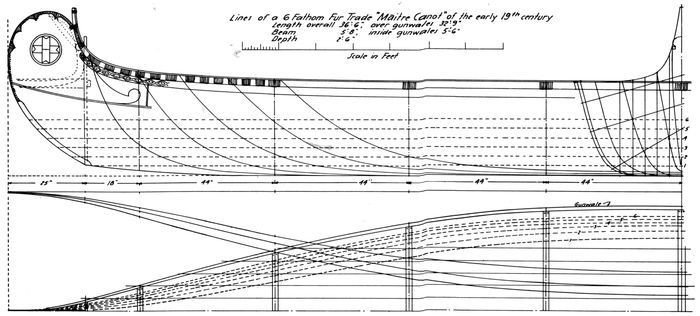 Lines of a 6 Fathom Fur Trade "Maitre Canot" of the early 19th century
Length overall 36'-6", over gunwales 32'-9"
Beam 5'-8", inside gunwales 5'-6"
Depth 2'-6"
Scale in Feet
25" 18" 44" 44" 44" 44"
Gunwale